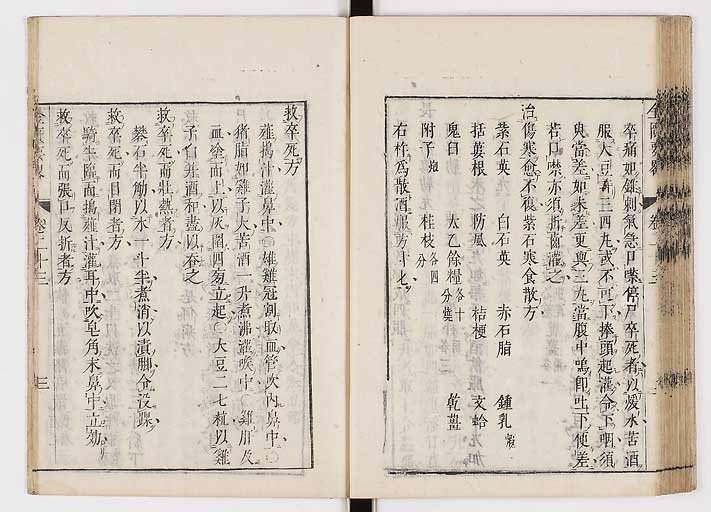 卒痛如錐刺氣急口噤停尸卒死者以煖水苦酒
服大豆許三四丸或不可下捧頭起灌令下咽須
臾當差如未差更與三丸當腹中鳴即吐下便差
若口噤亦須折齒灌之
治傷寒愈不復紫石寒食散方
紫石英 白石英 赤石脂 鍾乳
括蔞根 防風 桔梗 文蛤
鬼臼 太乙餘糧各十分 乾薑
附子 桂枝各四分
右杵爲散酒服方寸七
救卒死方
薤搗汁灌鼻中○雄雞冠割取血管吹內鼻中○
猪脂如雞子大苦酒一升煮沸灌喉中○雞肝及
血塗面上以灰圍四旁立起○大豆二七粒以雞
子白并酒和盡以吞之
救卒死而壯熱者方
礬石半觔以水一斗半煮消以漬脚令沒踝
救卒死而目閉者方
騎牛臨面搗薤汁灌耳中吹皂角末鼻中立効
救卒死而張口反折者方
金匱要畧 卷二十三 三